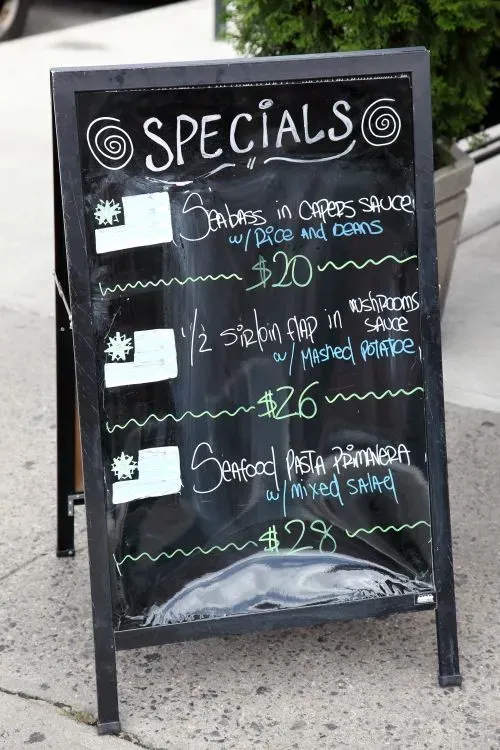 SPECIALS
Seabass in capers sauce
w/ Rice and beans
$20
1/2 sirloin flap in mushrooms sauce
w/ Mashed potatoe
$26
Seafood pasta primavera
w/ mixed salad
$28